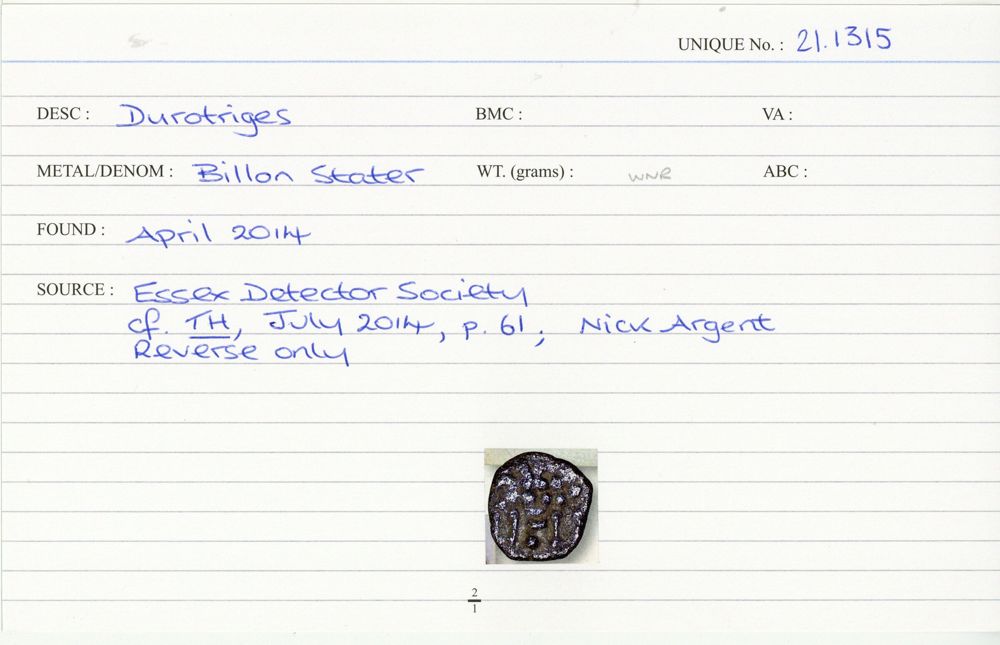 UNIQUE No. : 21.1315
DESC : Durotriges BMC : VA :
METAL/DENOM : Billon Stater WT. (grams) : WNR ABC :
FOUND : April 2014
SOURCE : Essex Detector Society
cf. TH, July 2014, p. 61; Nick Argent
Reverse only
2
1